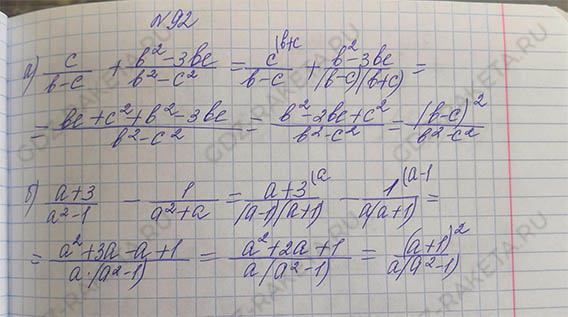 №92
а) c/(в-c) + (в²-3вc)/(в²-c²) = c^(в+c/(в-c) + (в²-3вc)/((в-c)(в+c)) =
= (вc+c²+в²-3вc)/(в²-c²) = (в²-2вc+c²)/(в²-c²) = (в-c)²/(в²-c²)
б) (a+3)/(a²-1) - 1/(a²+a) = a+3^(a/((a-1)(a+1)) - 1^(a-1/(a(a+1)) =
= (a²+3a-a+1)/(a·(a²-1)) = (a²+2a+1)/(a(a²-1)) = (a+1)²/(a(a²-1))
GDZ-RAKETA.RU